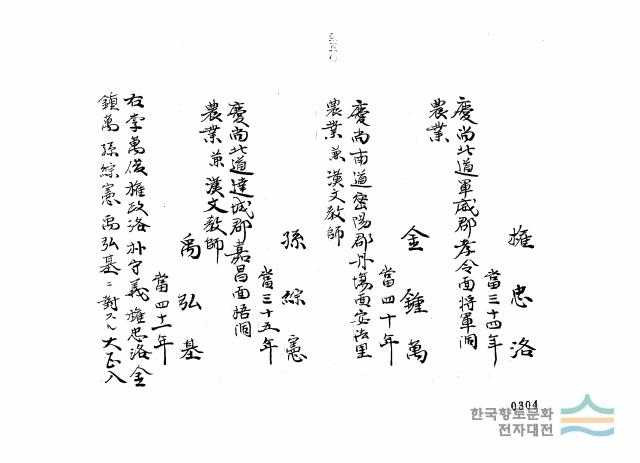 雍忠洛
當三十四年
慶尚北道軍威郡孝令面将軍洞
農業
金鍾萬
當四十年
慶尚南道密陽郡丹場面安法里
農業兼漢文教師
孫綜憲
當三十五年
慶尚北道達城郡嘉昌面梧洞
農業兼漢文教師
禹弘基
當四十二年
右李萬俊雍政洛朴守義雍忠洛金
鍾萬孫綜憲禹弘基ニ對スル大正八
0304
한국향토문화
전자대전